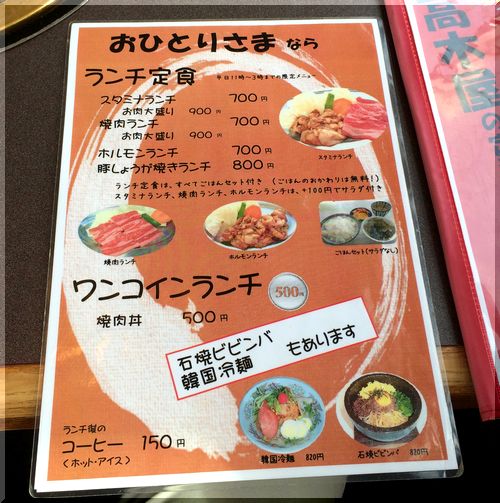 おひとりさま なら
ランチ定食 平日11時〜3時までの限定メニュー
スタミナランチ 700円
お肉大盛り 900円
焼肉ランチ 700円
お肉大盛り 900円
ホルモンランチ 700円
豚しょうが焼きランチ 800円
スタミナランチ
ランチ定食は、すべてごはんセット付き (ごはんのおかわりは無料!)
スタミナランチ、焼肉ランチ、ホルモンランチは、+100円でサラダ付き
焼肉ランチ
ホルモンランチ
ごはんセット(サラダなし)
ワンコインランチ 500円
焼肉丼 500円
石焼ビビンバ
韓国冷麺 もあります
ランチ後の
コーヒー 150円
(ホット・アイス)
韓国冷麺 820円
石焼ビビンバ 820円
高木屋の